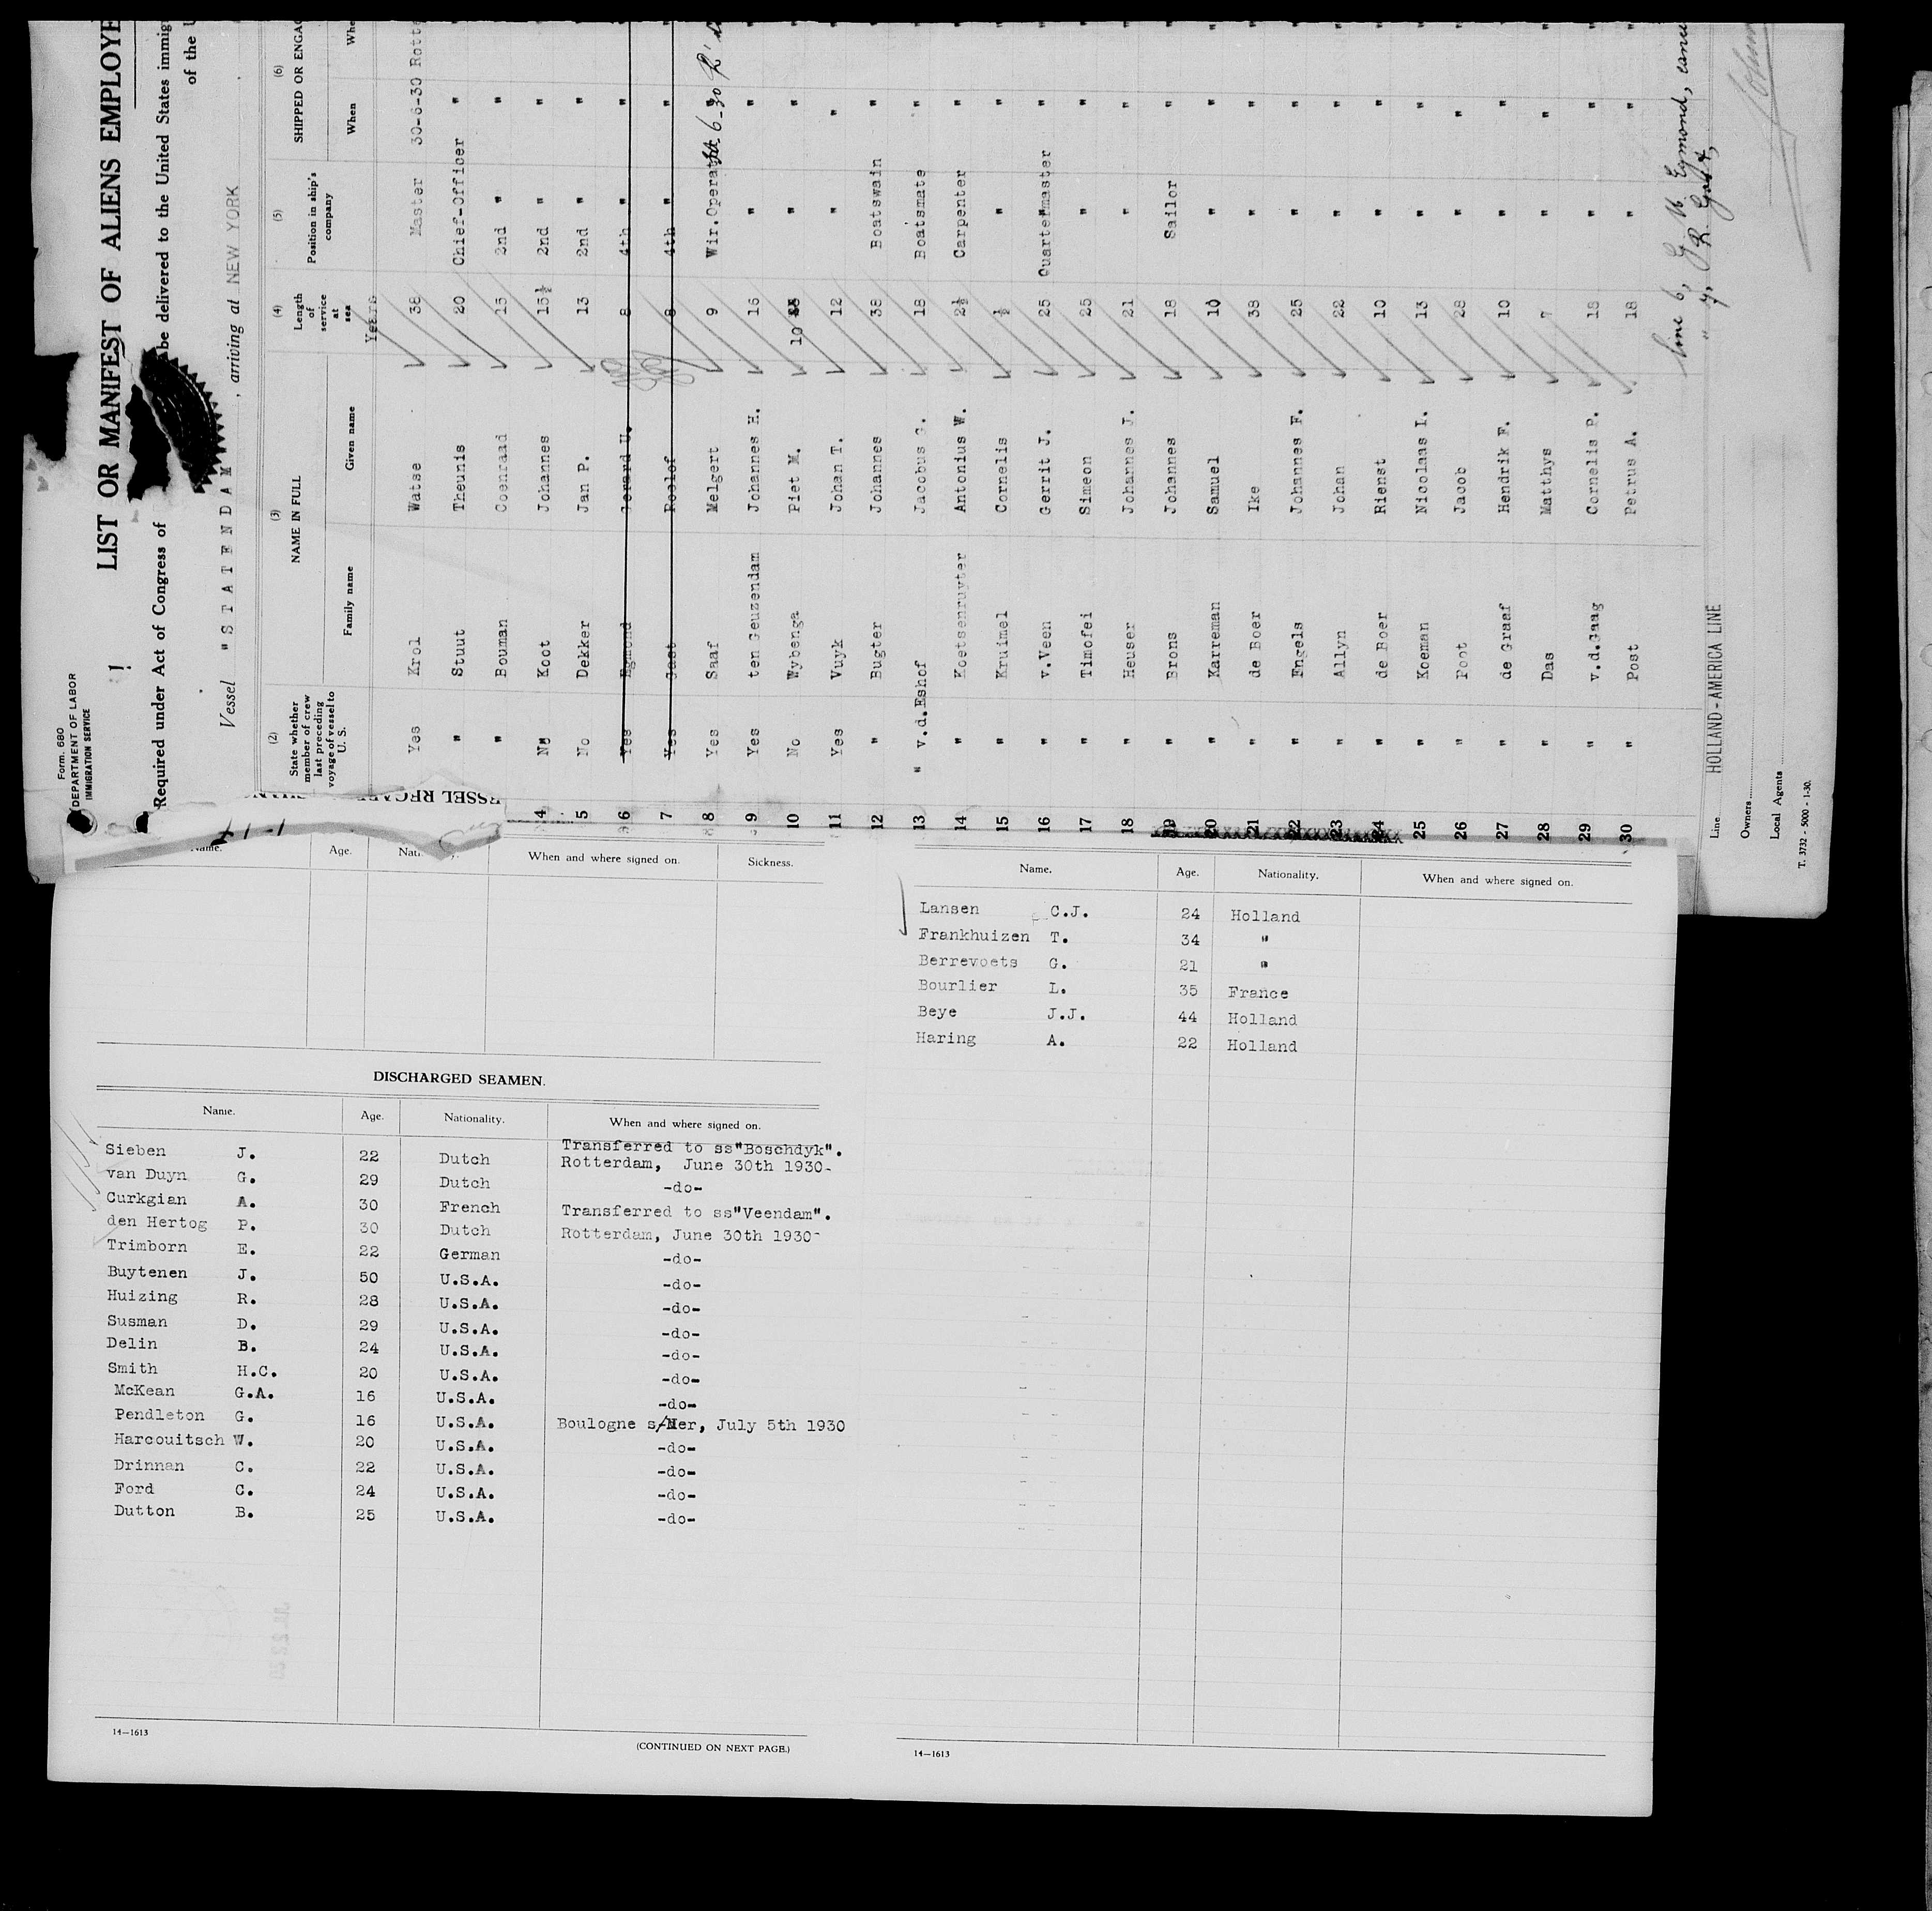 Form. 680
DEPARTMENT OF LABOR
IMMIGRATION SERVICE
LIST OR MANIFEST OF ALIENS EMPLOYE
Required under Act of Congress of
be delivered to the United States immig
of the U
Vessel "STATENDAM", arriving at NEW YORK
(2) State whether member of crew last preceding voyage of vessel to U. S.
(3) NAME IN FULL
Family name
Given name
(4) Length of service at sea
Years
(5) Position in ship's company
(6) SHIPPED OR ENGAG
When
Whe
Yes Krol Watse 38 Master 30-6-30 Rotte
" Stuut Theunis 20 Chief-Officer "
" Bouman Coenraad 15 2nd " "
4 No Koot Johannes 15½ 2nd " "
5 No Dekker Jan P. 13 2nd " "
6 Yes Egmond Gerard U. 8 4th " "
7 Yes Gast Roelof 8 4th " "
8 Yes Saaf Melgert 9 Wir.Operat 6-30 R'd
9 Yes ten Geuzendam Johannes H. 16 " "
10 No Wybenga Piet M. 10 " "
11 Yes Vuyk Johan T. 12 " "
12 " Bugter Johannes 38 Boatswain "
13 " v.d.Eshof Jacobus G. 18 Boatsmate "
14 " Koetsenruyter Antonius W. 2½ Carpenter "
15 " Kruimel Cornelis ½ " "
16 " v.Veen Gerrit J. 25 Quartermaster "
17 " Timofei Simeon 25 " "
18 " Heuser Johannes J. 21 " "
19 " Brons Johannes 18 Sailor "
20 " Karreman Samuel 10 " "
21 " de Boer Ike 38 " "
22 " Engels Johannes F. 25 " "
23 " Allyn Johan 22 " "
24 " de Boer Rienst 10 " "
25 " Koeman Nicolaas I. 13 " "
26 " Poot Jacob 28 " "
27 " de Graaf Hendrik F. 10 " "
28 " Das Matthys 7 " "
29 " v.d.Gaag Cornelis P. 18 " "
30 " Post Petrus A. 18 " "
line 6, G. U. Egmond, canc
" 7, R. Gast,
Line HOLLAND-AMERICA LINE
Owners
Local Agents
T. 3732 - 5000 - 1-30.
Name. Age. When and where signed on. Sickness.
DISCHARGED SEAMEN.
Name. Age. Nationality. When and where signed on.
Sieben J. 22 Dutch Transferred to ss"Boschdyk".
Rotterdam, June 30th 1930-
van Duyn G. 29 Dutch -do-
Curkgian A. 30 French Transferred to ss"Veendam".
den Hertog P. 30 Dutch Rotterdam, June 30th 1930-
Trimborn E. 22 German -do-
Buytenen J. 50 U.S.A. -do-
Huizing R. 28 U.S.A. -do-
Susman D. 29 U.S.A. -do-
Delin B. 24 U.S.A. -do-
Smith H.C. 20 U.S.A. -do-
McKean G.A. 16 U.S.A. -do-
Pendleton G. 16 U.S.A. Boulogne s/Mer, July 5th 1930
Harcouitsch W. 20 U.S.A. -do-
Drinnan C. 22 U.S.A. -do-
Ford C. 24 U.S.A. -do-
Dutton B. 25 U.S.A. -do-
14—1613
(CONTINUED ON NEXT PAGE.)
Name. Age. Nationality. When and where signed on.
Lansen C.J. 24 Holland
Frankhuizen T. 34 "
Berrevoets G. 21 "
Bourlier L. 35 France
Beye J.J. 44 Holland
Haring A. 22 Holland
14—1613